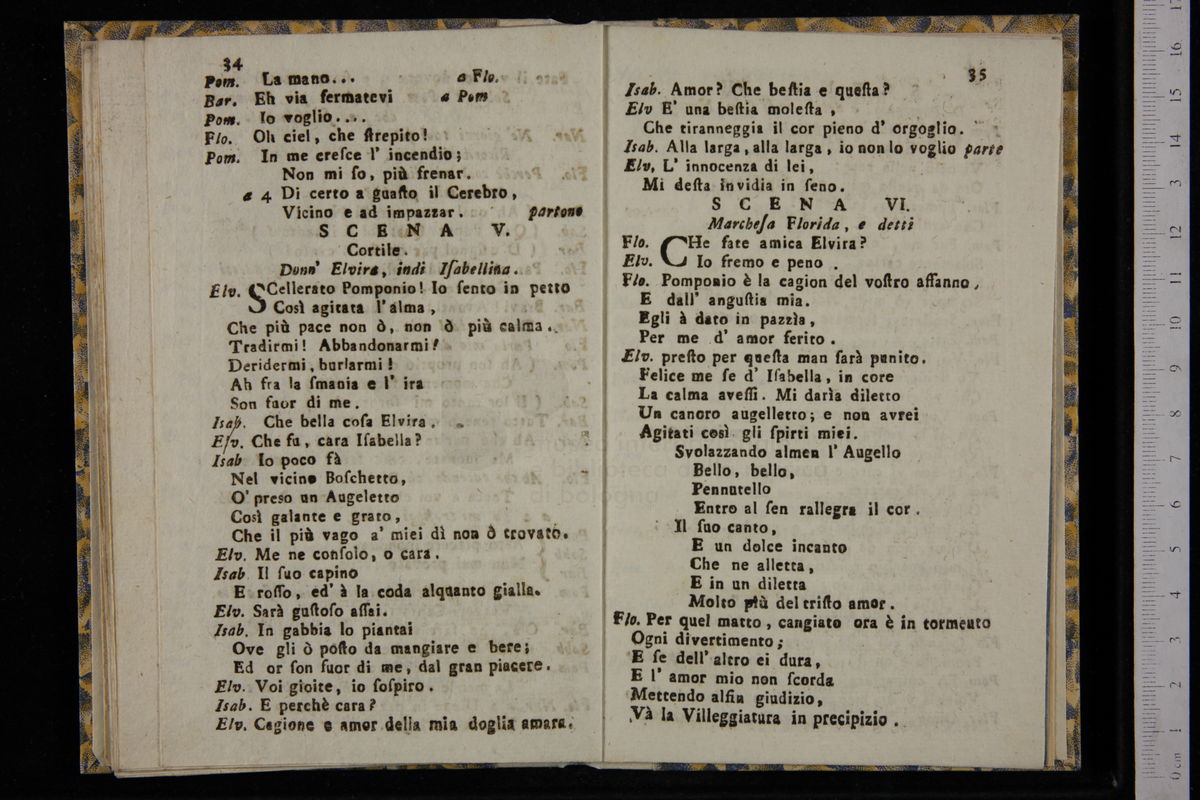 34
Pom. La mano... a Flo.
Bar. Eh via fermatevi a Pom
Pom. Io voglio....
Flo. Oh ciel, che ſtrepito!
Pom. In me creſce l' incendio;
Non mi ſo, più frenar.
a 4 Di certo a guaſto il Cerebro,
Vicino e ad impazzar. partono
SCENA V.
Cortile.
Donn' Elvira, indi Iſabellina.
Elv. SCellerato Pomponio! Io ſento in petto
Così agitata l' alma,
Che più pace non ò, non ò più calma.
Tradirmi! Abbandonarmi!
Deridermi, burlarmi!
Ah fra la ſmania e l' ira
Son fuor di me.
Isab. Che bella coſa Elvira.
Elv. Che fu, cara Iſabella?
Isab Io poco fà
Nel vicino Boſchetto,
O' preso un Augeletto
Così galante e grato,
Che il più vago a' miei dì non ò trovato.
Elv. Me ne conſolo, o cara.
Isab Il ſuo capino
E roſſo, ed' à la coda alquanto gialla.
Elv. Sarà guſtoſo aſſai.
Isab. In gabbia lo piantai
Ove gli ò poſto da mangiare e bere;
Ed or ſon fuor di me, dal gran piacere.
Elv. Voi gioite, io ſoſpiro.
Isab. E perchè cara?
Elv. Cagione e amor della mia doglia amara.
35
Isab. Amor? Che beſtia e queſta?
Elv E' una beſtia moleſta,
Che tiranneggia il cor pieno d' orgoglio.
Isab. Alla larga, alla larga, io non lo voglio parte
Elv, L' innocenza di lei,
Mi deſta invidia in ſeno.
SCENA VI.
Marcheſa Florida, e detti
Flo. CHe fate amica Elvira?
Elv. Io fremo e peno.
Flo. Pomponio è la cagion del voſtro affanno,
E dall' anguſtia mia.
Egli à dato in pazzìa,
Per me d' amor ferito.
Elv. preſto per queſta man ſarà punito.
Felice me ſe d' Iſabella, in core
La calma aveſſi. Mi darìa diletto
Un canoro augelletto; e non avrei
Agitati così gli ſpirti miei.
Svolazzando almen l' Augello
Bello, bello,
Pennutello
Entro al ſen rallegra il cor.
Il ſuo canto,
E un dolce incanto
Che ne alletta,
E in un diletta
Molto più del triſto amor.
Flo. Per quel matto, cangiato ora è in tormento
Ogni divertimento;
E ſe dell' altro ei dura,
E l' amor mio non ſcorda
Mettendo alfin giudizio,
Và la Villeggiatura in precipizio.
0 cm 1 2 3 4 5 6 7 8 9 10 11 12 13 14 15 16 17